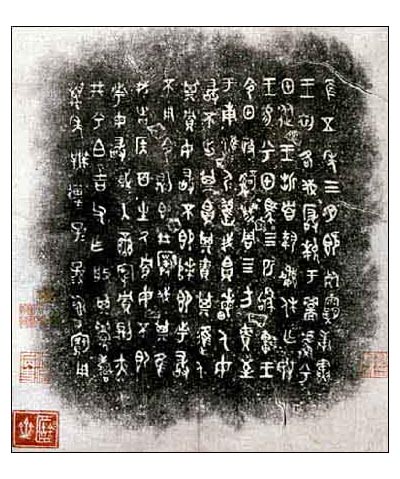 隹五年三月既死霸庚寅
王初各伐于兮
甲從王折首執訊休亡敃
王易兮甲馬四匹駒車王
令甲政𤔲成周四方責至
于南淮尸淮尸舊我人毋
敢不出其其責其進人
其貯毋敢不即次即市敢
不用令則即井伐其隹
我者侯百生氒貯毋不即
市毋敢或入宄貯則亦
井兮白吉父乍般其眉壽
萬年無疆子子孫孫永寶用